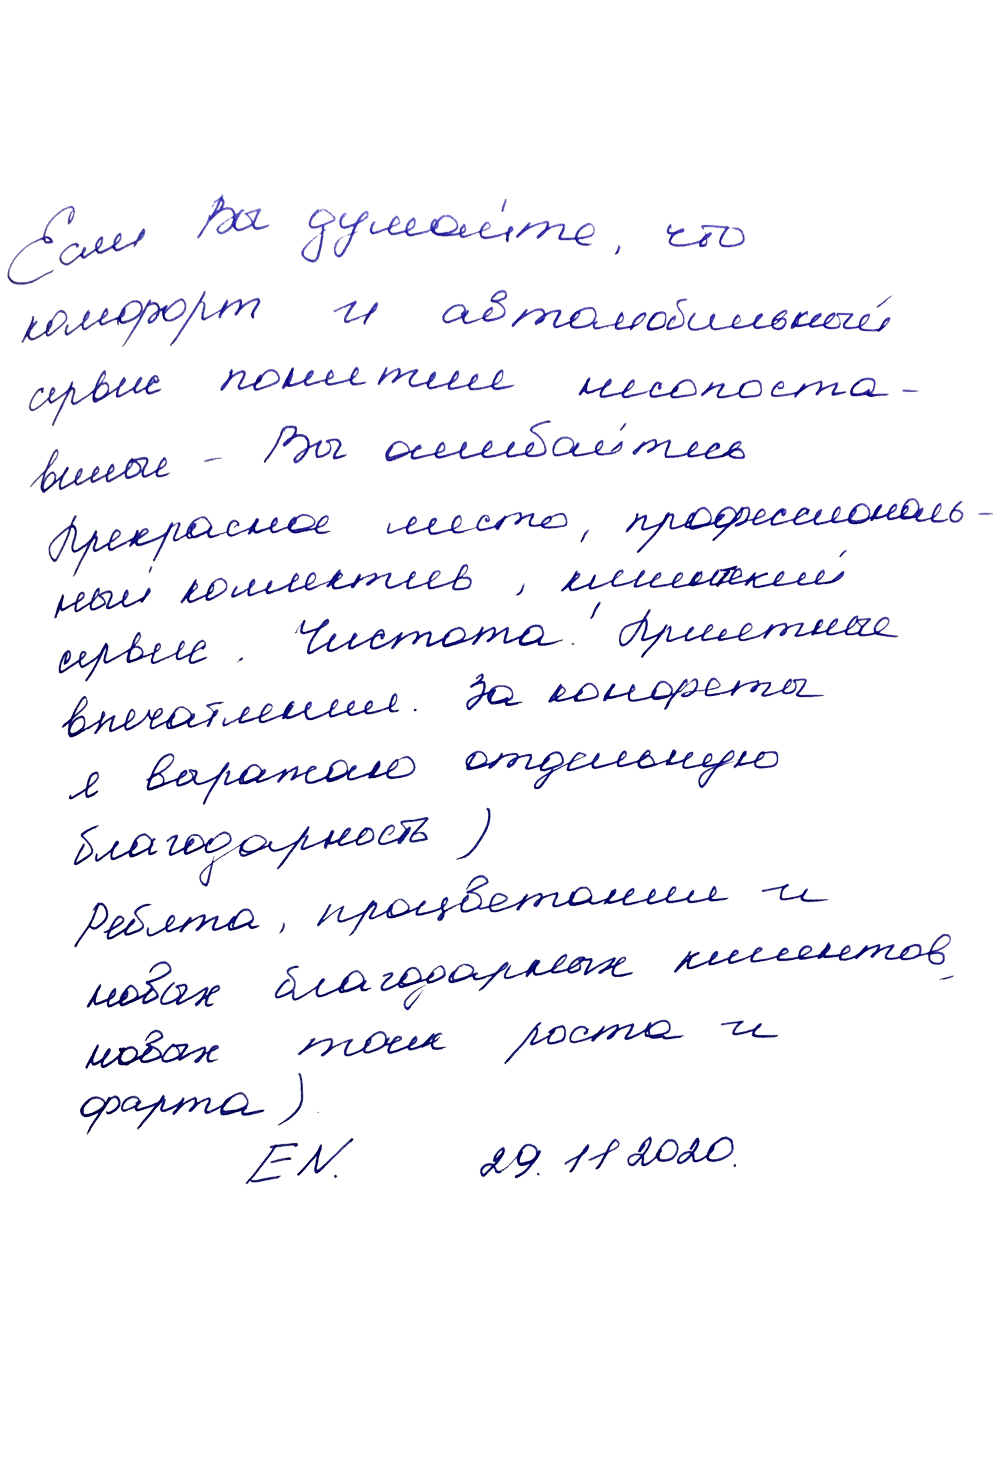 Если Вы думайте, что
комфорт и автомобильный
сервис понятие несопоста-
вимые - Вы ошибайтесь
Прекрасное место, профессиональ-
ный коллектив, клиентский
сервис. Чистота! Приятные
впечатления. За конфеты
я выражаю отдельную
благодарность)
Ребята, процветания и
новых благодарных клиентов,
новых точек роста и
фарта)
EN. 29.11 2020.